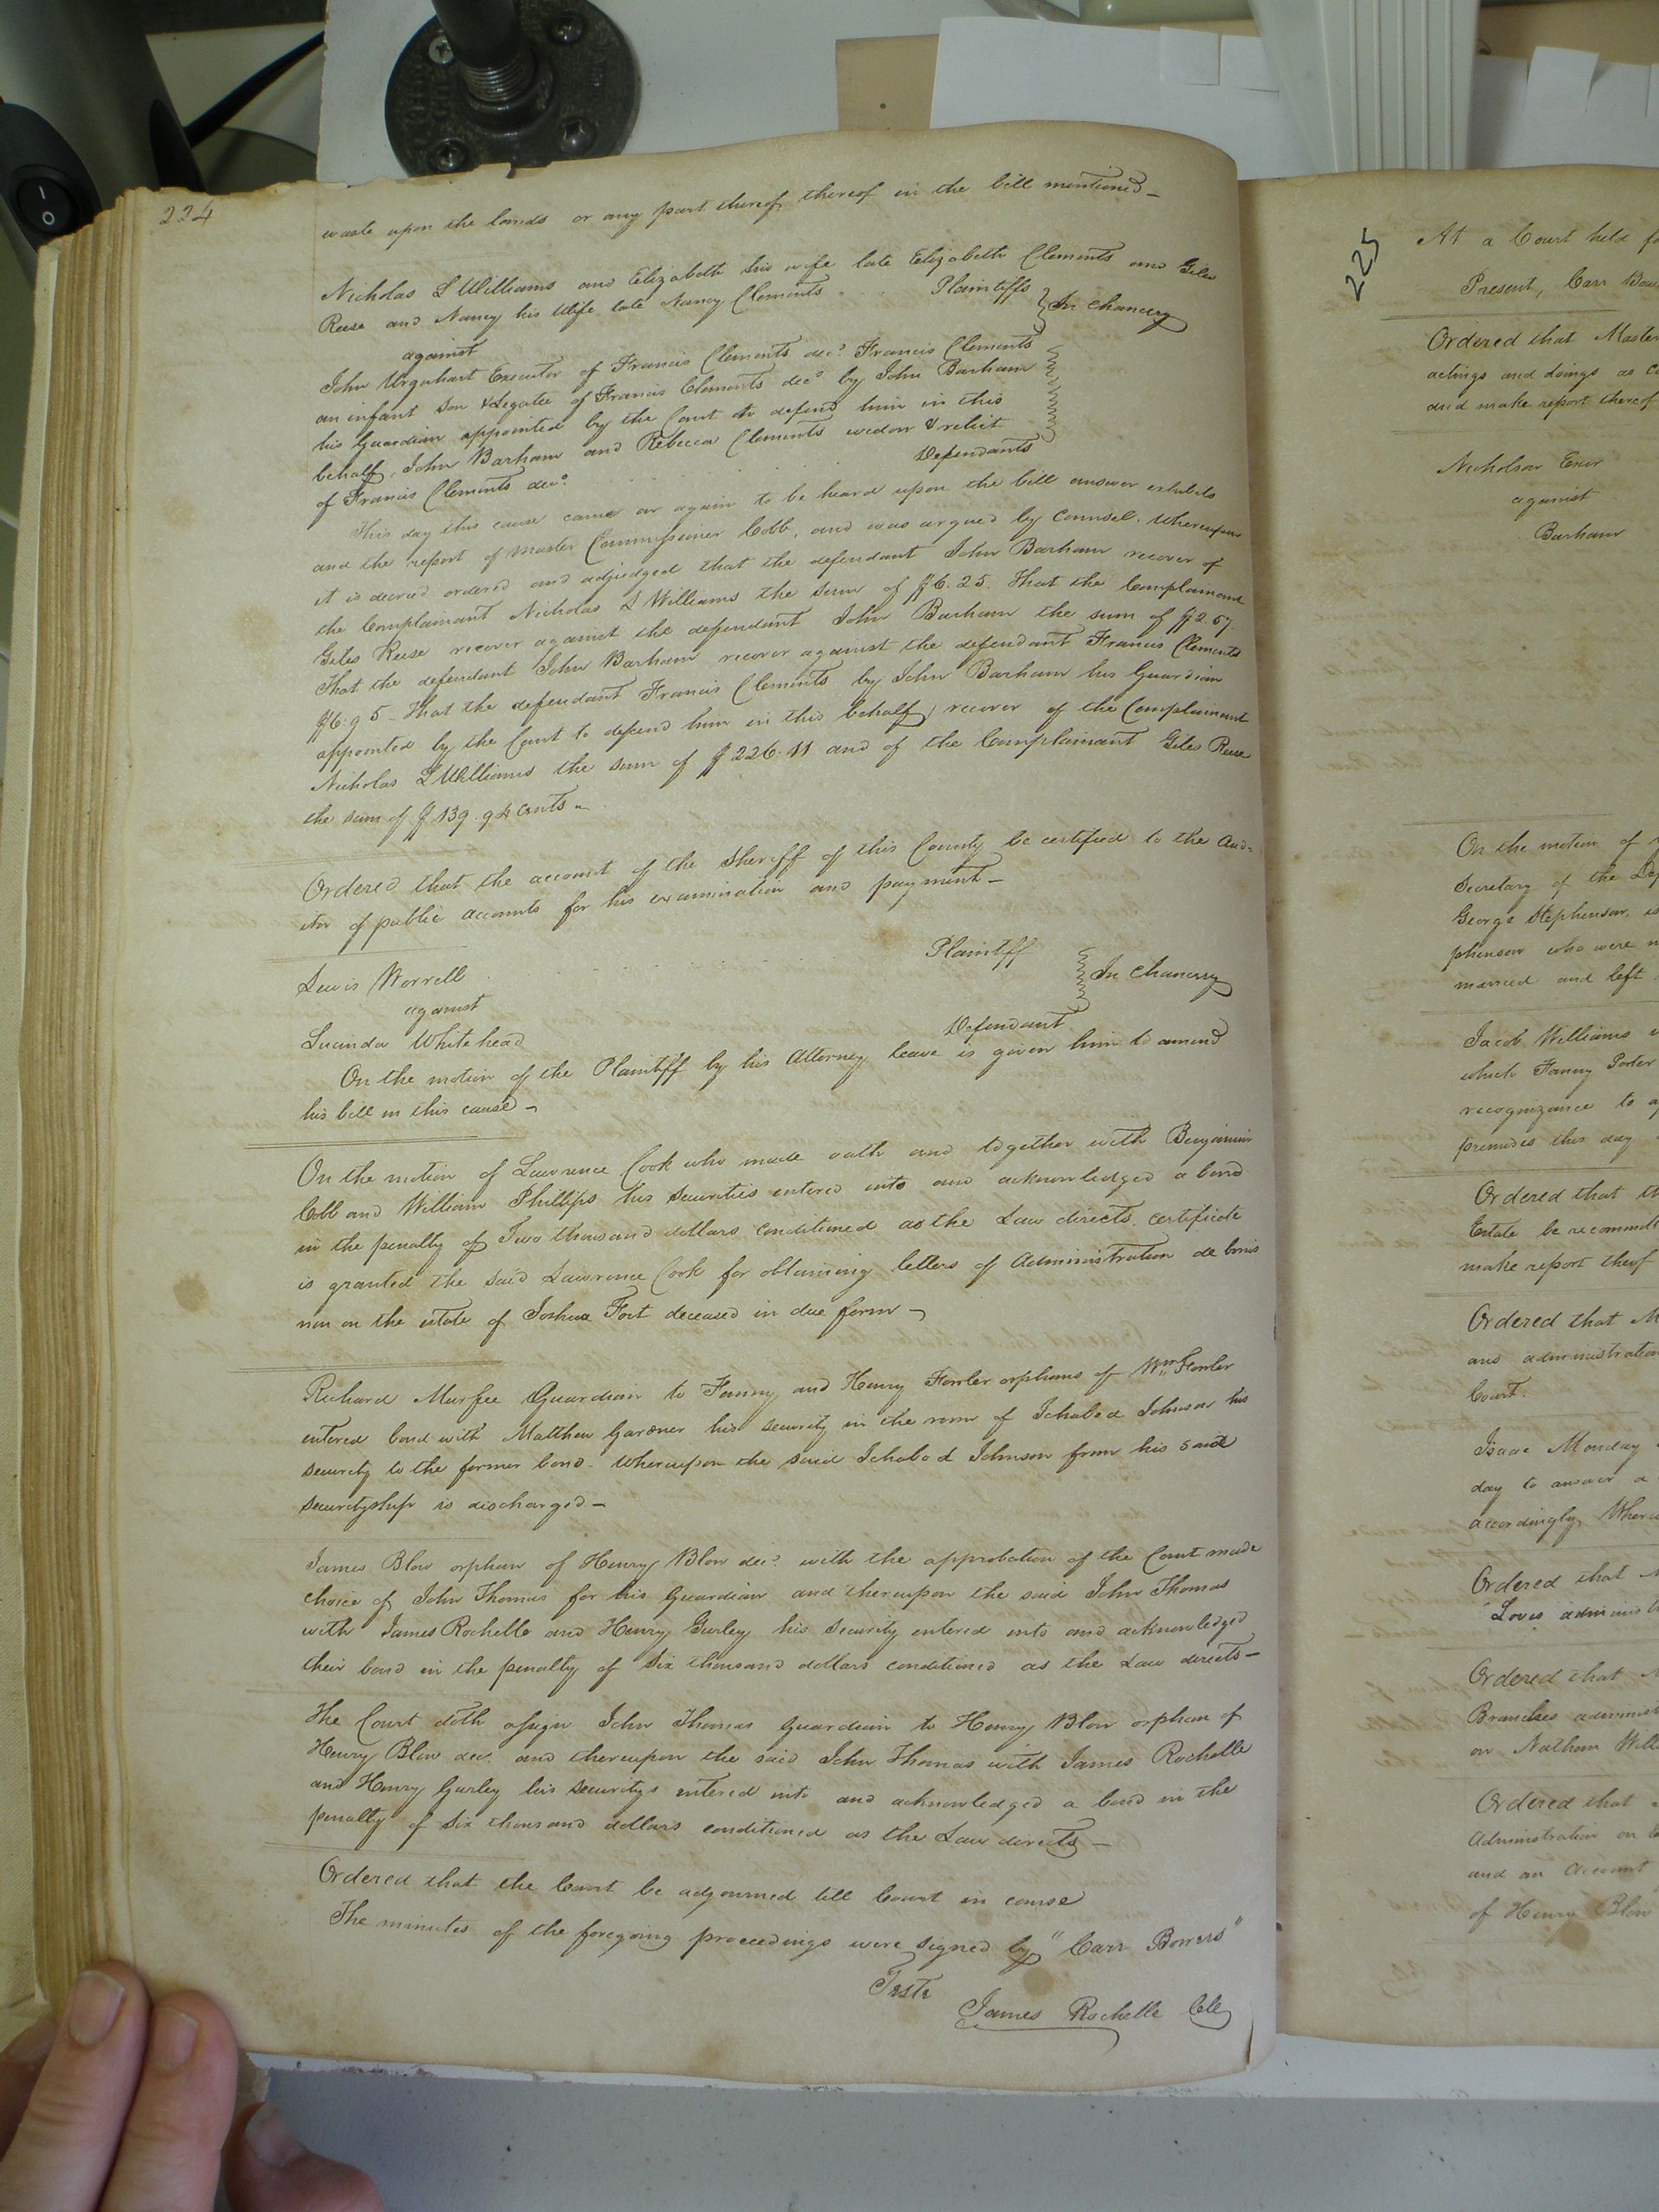 224
waste upon the lands or any part thereof thereof in the bill mentioned—
Nicholas L Williams and Elizabeth his wife late Elizabeth Clements and Giles
Reese and Nancy his Wife late Nancy Clements Plaintiffs
In Chancery
against
John Urquhart Executor of Francis Clements dec.d Francis Clements
an infant Son & Legatee of Francis Clements dec.d by John Barham
his Guardian appointed by the Court to defend him in this
behalf, John Barham and Rebecca Clements widow & relict
of Francis Clements dec.d
Defendants
This day this cause came on again to be heard upon the bill answer exhibits
and the report of Master Commissioner Cobb, and was argued by Counsel. Whereupon
it is decreed ordered and adjudged that the defendant John Barham recover of
the Complainant Nicholas L Williams the sum of $6.25. That the Complainant
Giles Reese recover against the defendant John Barham the sum of $2.67.
That the defendant John Barham recover against the defendant Francis Clements
$6.95 – That the defendant Francis Clements by John Barham his Guardian
appointed by the Court to defend him in this behalf, recover of the Complainant
Nicholas L Williams the sum of $226.11 and of the Complainant Giles Reese
the sum of $139.94 cents –
Ordered that the account of the Sheriff of this County be certified to the Aud=
itor of public accounts for his examination and payment –
Lewis Worrell Plaintiff
against
In Chancery
Lucinda Whitehead Defendant
On the motion of the Plaintiff by his Attorney leave is given him to amend
his bill in this cause –
On the motion of Lawrence Cook who made oath and together with Benjamin
Cobb and William Phillips his Securities entered into and acknowledged a bond
in the penalty of Two thousand dollars conditioned as the Law directs, certificate
is granted the said Lawrence Cook for obtaining letters of Administration de bonis
non on the estate of Joshua Fort deceased in due form –
Richard Murfee Guardian to Fanny and Henry Fowler orphans of Wm Fowler
entered bond with Matthew Gardner his security in the room of Ichabod Johnson his
security to the former bond. Whereupon the said Ichabod Johnson from his said
securityship is discharged –
James Blow orphan of Henry Blow dec.d with the approbation of the Court made
choice of John Thomas for his Guardian and thereupon the said John Thomas
with James Rochelle and Henry Gurley his Security entered into and acknowledged
their bond in the penalty of Six thousand dollars conditioned as the Law directs –
The Court doth assign John Thomas Guardian to Henry Blow orphan of
Henry Blow dec.d and thereupon the said John Thomas with James Rochelle
and Henry Gurley his Securitys entered into and acknowledged a bond in the
penalty of Six thousand dollars conditioned as the Law directs –
Ordered that the Court be adjourned till Court in course
The minutes of the foregoing proceedings were signed by "Carr Bowers"
Teste
James Rochelle Clk
225
At a Court held
Present, Carr
Ordered that Master
actings and doings as
and make report thereof
Nicholson Exor
against
Barham
On the motion of
Secretary of the
George Stephenson, is
phenson who were
married and left
Jacob Williams
which Fanny Porter
recognizance to
premises this day
Ordered that
Estate be recommit
make report theof
Ordered that
and administration
Court.
Isaac Monday
day to answer a
accordingly
Ordered that
Ordered that
Branches administ
on Nathan
Ordered that
Administration on
and an Account
of Henry Blow